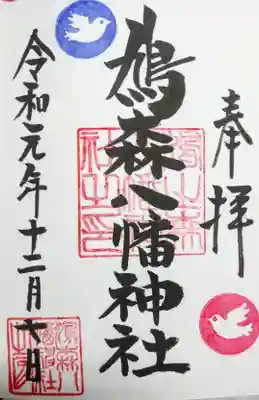 奉拝
鳩森八幡神社
令和元年十二月七日